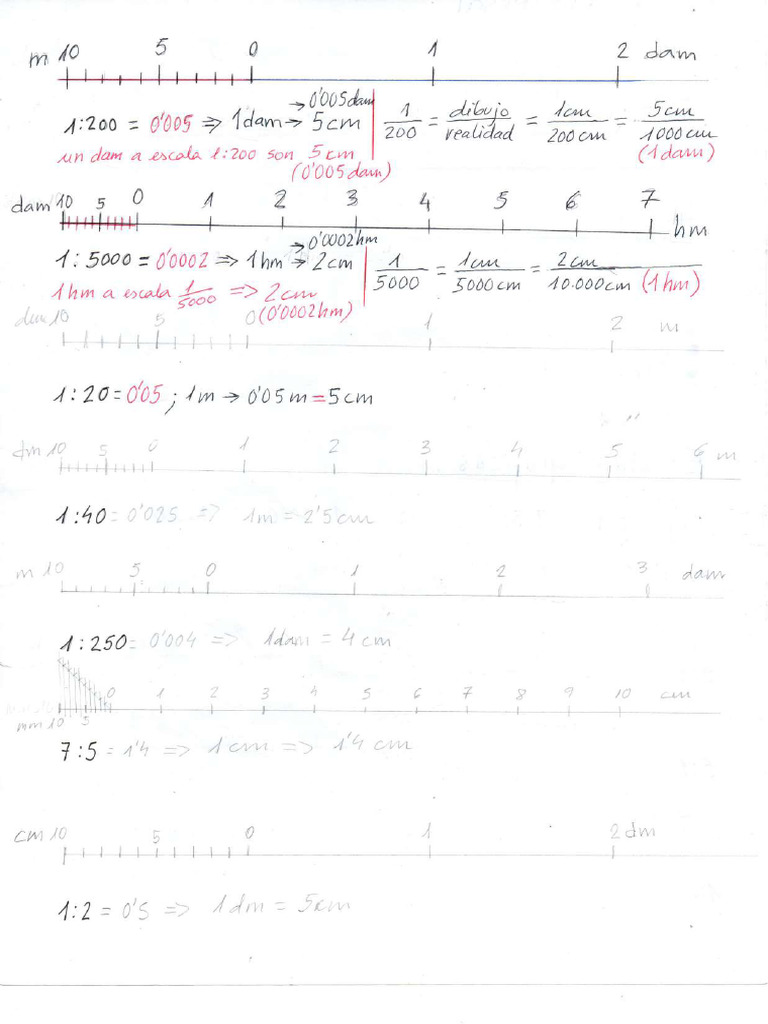 m 10 5 0 1 2 dam
1:200 = 0'005 ⇒ 1dam → 5cm → 0'005dam | 1/200 = dibujo/realidad = 1cm/200cm = 5cm/1000cm (1dam)
un dam a escala 1:200 son 5cm (0'005dam)
dam 10 5 0 1 2 3 4 5 6 7 hm
1:5000 = 0'0002 ⇒ 1hm → 2cm → 0'0002hm | 1/5000 = 1cm/5000cm = 2cm/10.000cm (1hm)
1hm a escala 1/5000 ⇒ 2cm (0'0002hm)
dm 10 5 0 1 2 m
1:20 = 0'05 ; 1m → 0'05m = 5cm
dm 10 5 0 1 2 3 4 5 6 m
1:40 = 0'025 ⇒ 1m = 2'5cm
m 10 5 0 1 2 3 dam
1:250 = 0'004 ⇒ 1dam = 4cm
0 1 2 3 4 5 6 7 8 9 10 cm
mm 10 5
7:5 = 1'4 ⇒ 1cm ⇒ 1'4cm
cm 10 5 0 1 2 dm
1:2 = 0'5 ⇒ 1dm = 5cm